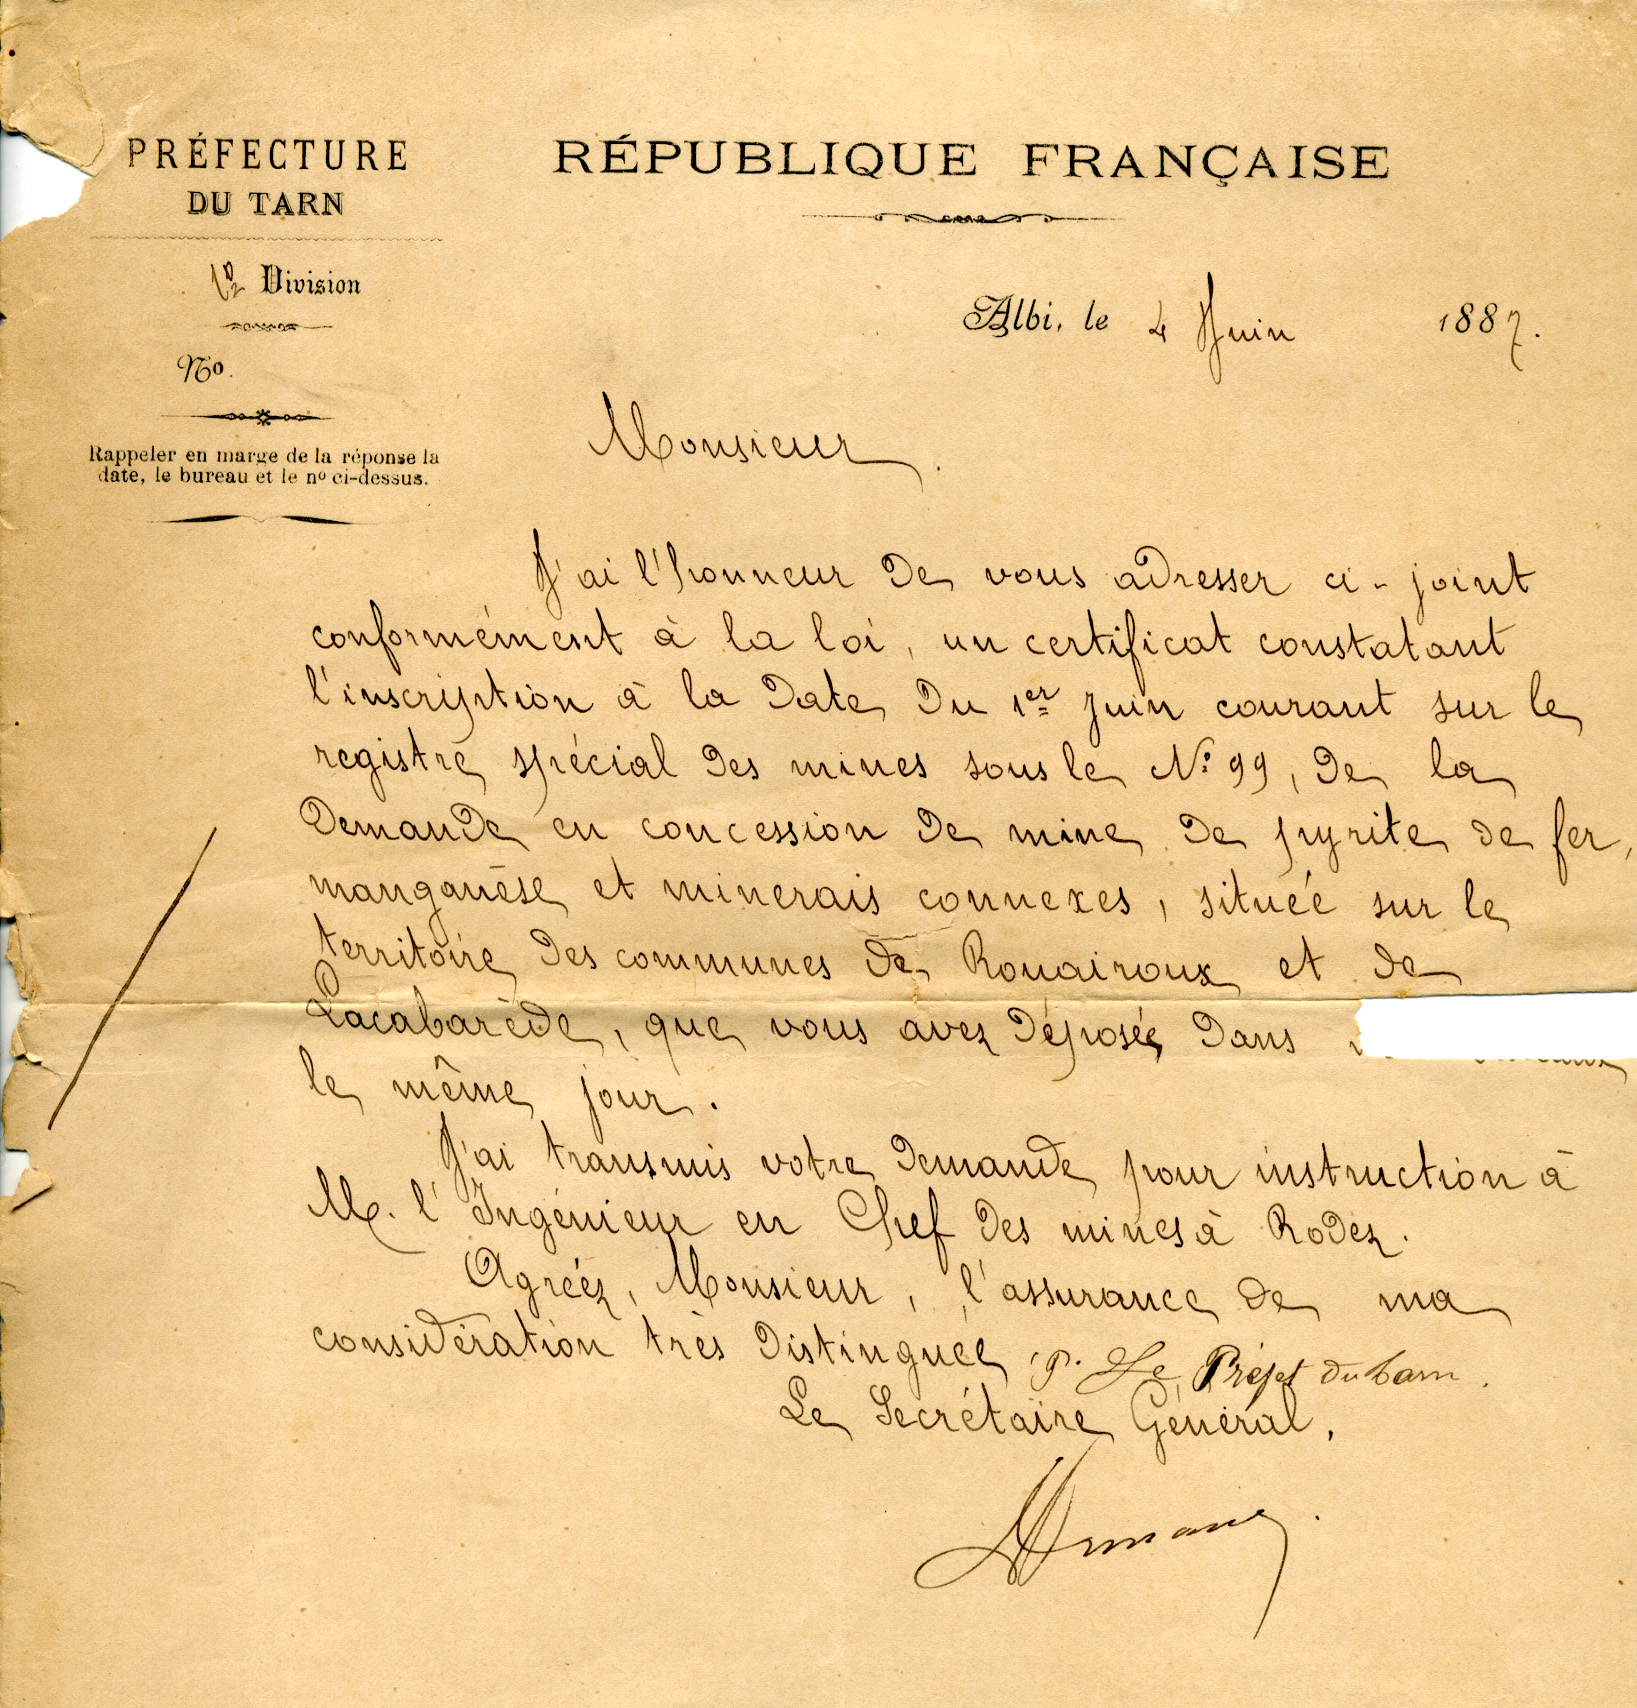 PRÉFECTURE
DU TARN
Division
No
Rappeler en marge de la réponse la
date, le bureau et le no ci-dessus.
RÉPUBLIQUE FRANÇAISE
Albi, le 4 Juin 1887.
Monsieur
J'ai l'honneur de vous adresser ci-joint
conformément à la loi, un certificat constatant
l'inscription à la date du 1er juin courant sur le
registre spécial des mines sous le No 99, de la
demande en concession de mine de pyrite de fer,
manganèse et minerais connexes, située sur le
territoire des communes de Rouairoux et de
Lacabarède, que vous avez déposée dans
le même jour.
J'ai transmis votre demande pour instruction à
M. l'Ingénieur en Chef des mines à Rodez.
Agréez, Monsieur, l'assurance de ma
considération très distinguée
P. Le Préfet du Tarn.
Le Secrétaire Général,